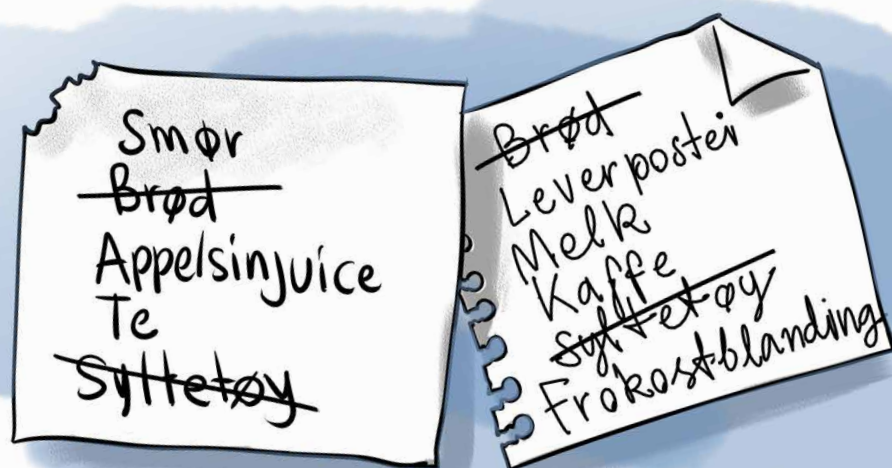 Smør
Brød
Appelsinjuice
Te
Syltetøy
Brød
Leverpostei
Melk
Kaffe
Syltetøy
Frokostblanding